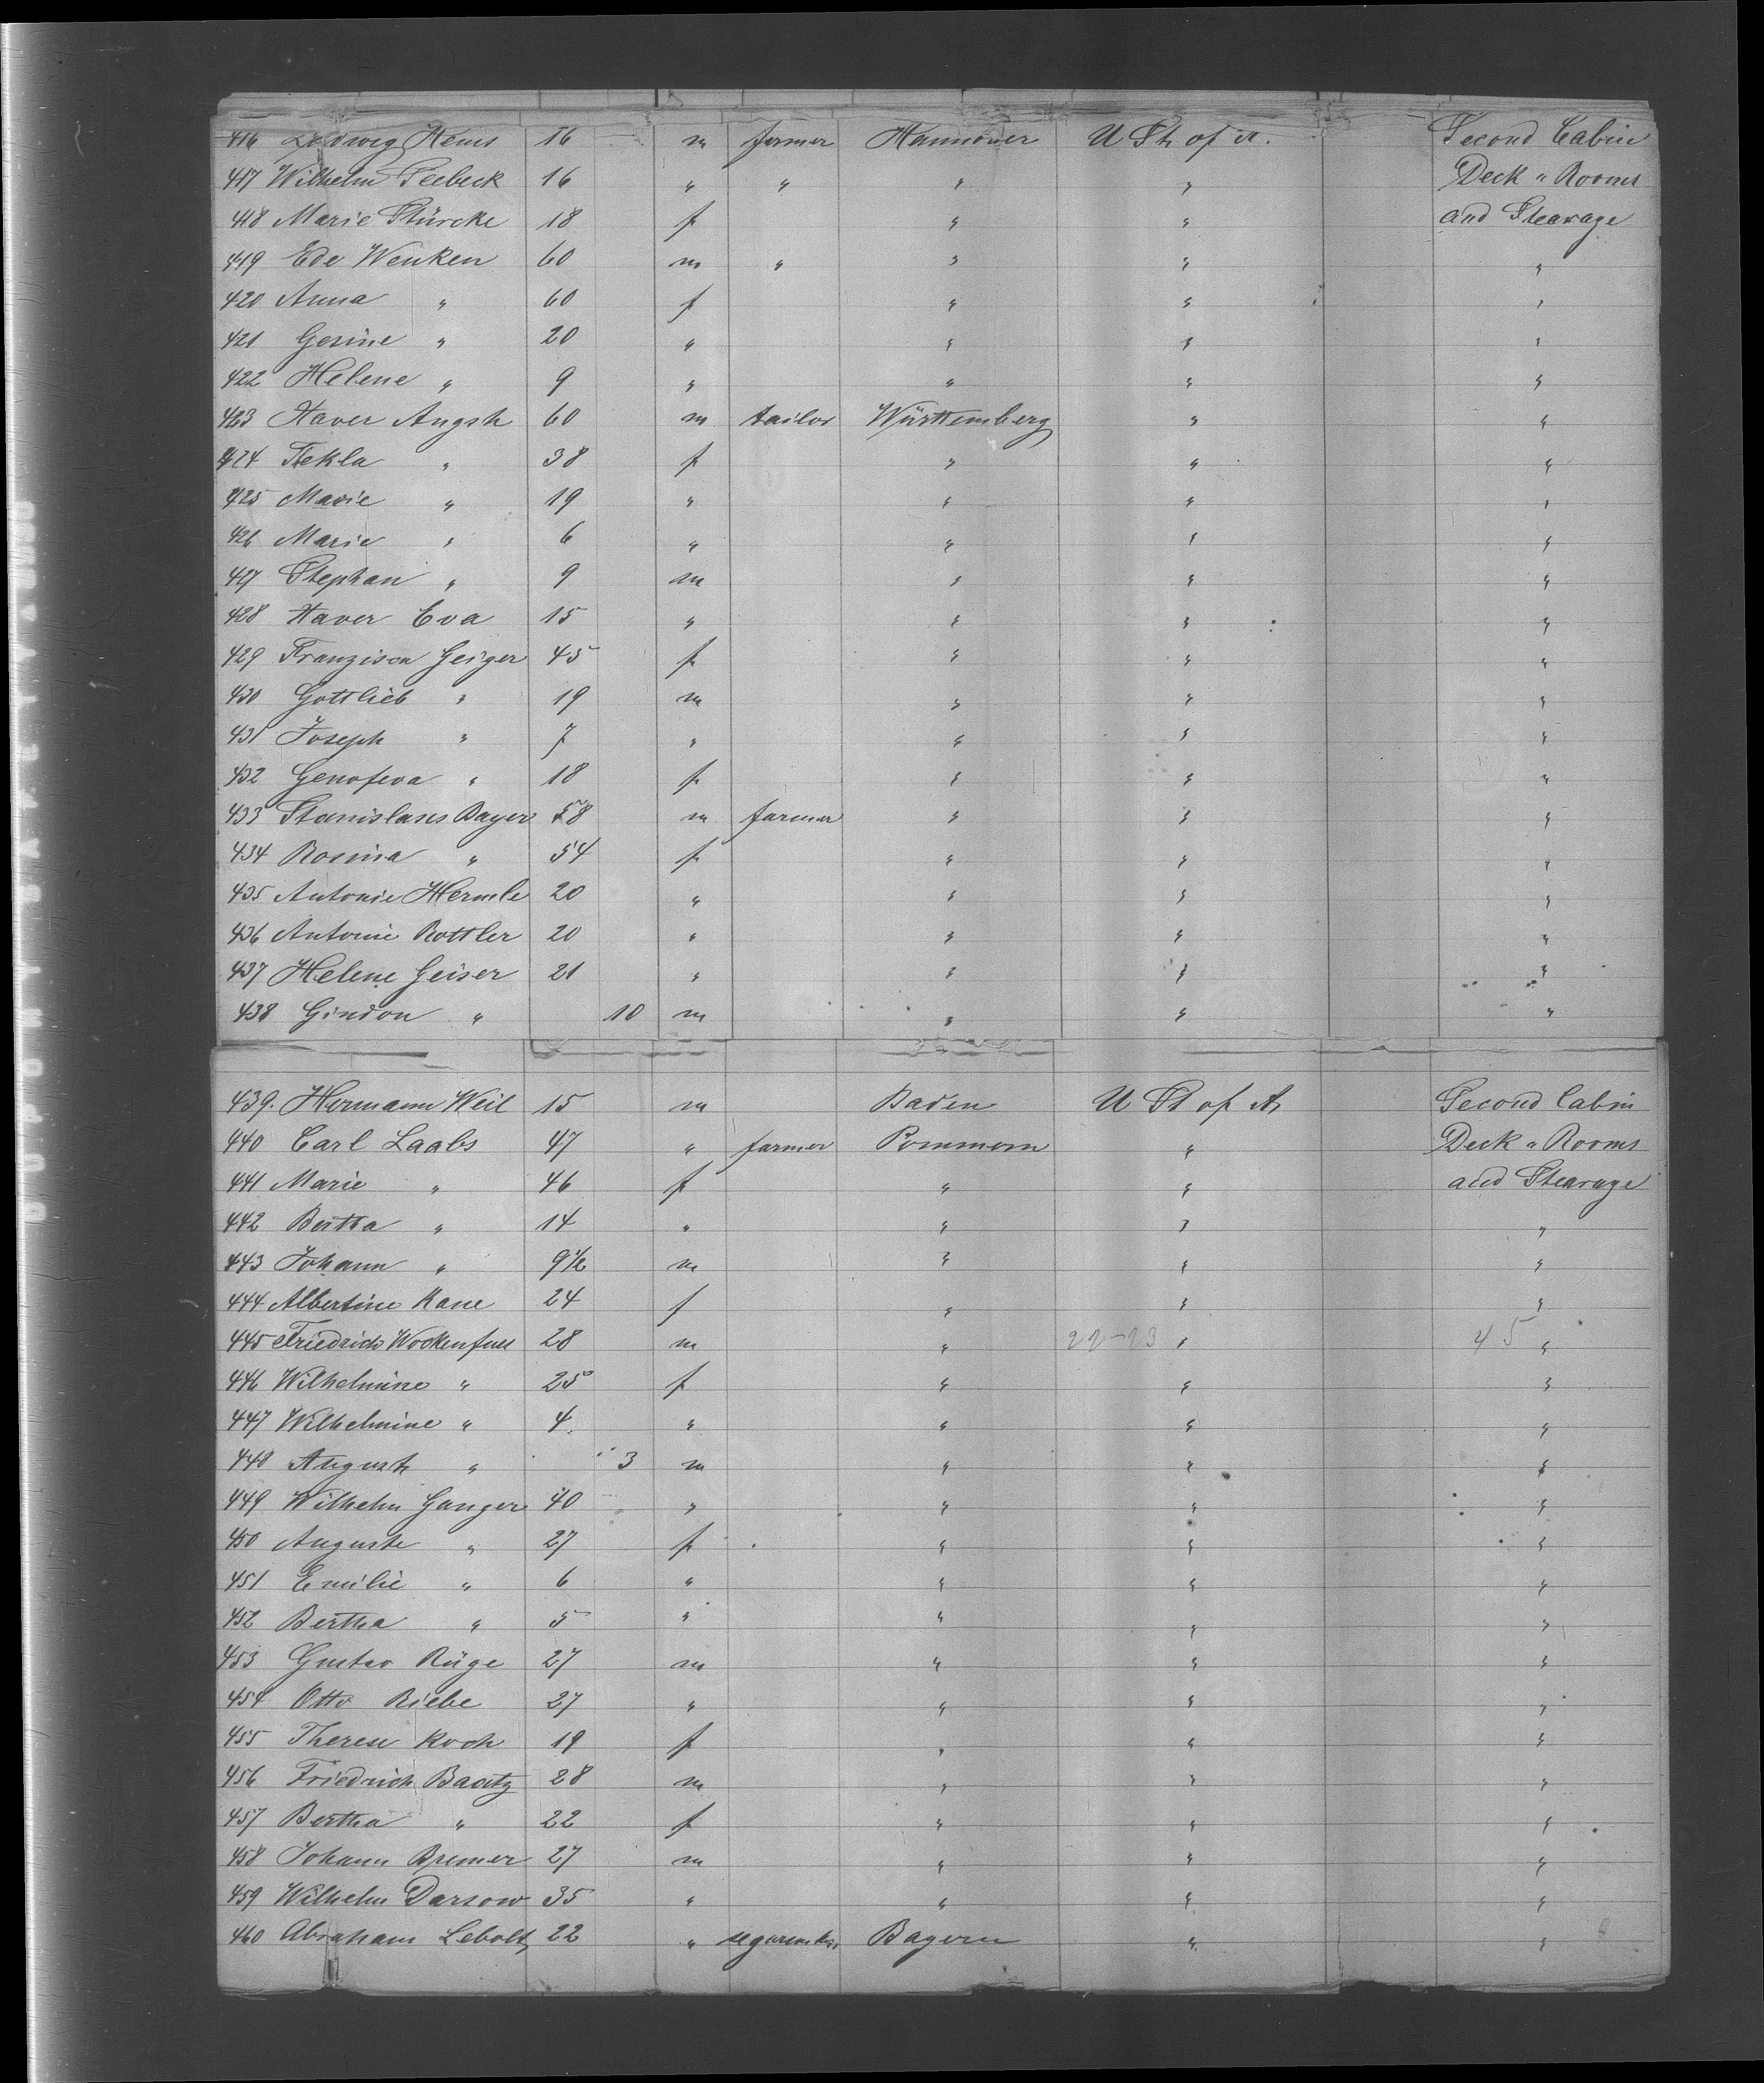 416 Ludwig Hems 16 m farmer Hannover U St of A. Second Cabin
417 Wilhelm Seebeck 16 " " " " Deck " Rooms
418 Marie Stürcke 18 f " " and Stearage
419 Ede Wenken 60 m " " " "
420 Anna " 60 f " " "
421 Gesine " 20 " " " "
422 Helene " 9 " " " "
423 Xaver Angst 60 m tailor Württemberg " "
424 Tekla " 38 f " " "
425 Marie " 19 " " " "
426 Marie " 6 " " " "
427 Stephan " 9 m " " "
428 Xaver Eva 15 " " " "
429 Franzisca Geiger 45 f " " "
430 Gottlieb " 19 m " " "
431 Joseph " 7 " " " "
432 Genofeva " 18 f " " "
433 Stanislaus Bayer 58 m farmer " " "
434 Rosina " 54 f " " "
435 Antonie Hermle 20 " " " "
436 Antonie Rottler 20 " " " "
437 Helene Geiser 21 " " " "
438 Gindon " 10 m " " "
439. Hermann Weil 15 m Baden U St of A Second Cabin
440 Carl Laabs 47 " farmer Pommern " Deck " Rooms
441 Marie " 46 f " " and Stearage
442 Bertha " 14 " " " "
443 Johann " 9 1/2 m " " "
444 Albertine Kane 24 f " " "
445 Friedrich Wockenfuss 28 m " 22-23 " 45 "
446 Wilhelmine " 25 f " " "
447 Wilhelmine " 4 " " " "
448 August " 3 m " " "
449 Wilhelm Ganger 40 " " " "
450 Auguste " 27 f " " "
451 Emilie " 6 " " " "
452 Bertha " 5 " " " "
453 Gustav Rüge 27 m " " "
454 Otto Riebe 27 " " " "
455 Therese Koch 19 f " " "
456 Friedrich Baatz 28 m " " "
457 Bertha " 22 f " " "
458 Johann Bremer 27 m " " "
459 Wilhelm Darsow 35 " " " "
460 Abraham Lebolt 22 " Bayern " "